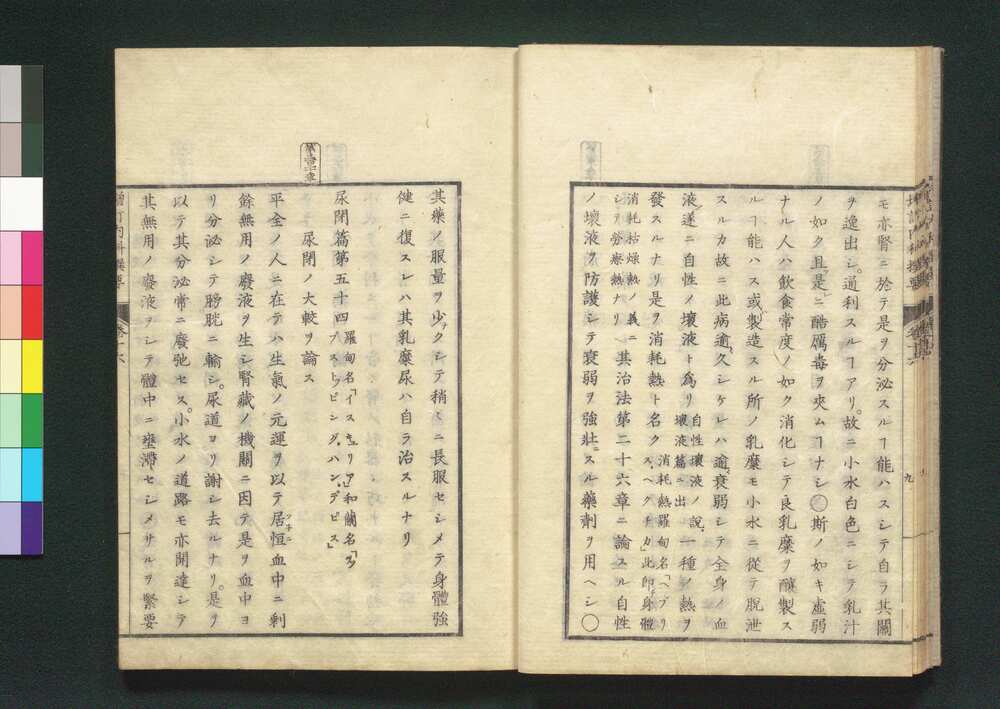 モ亦腎ニ於テ是ヲ分泌スルヿ能ハスシテ自ラ其關
ヲ逸出シ。道利スルヿアリ。故ニ小水白色ニシテ乳汁
ノ如ク且。是ニ酷厲毒ヲ夾ムヿナシ○斯ノ如キ虛弱
ナル人ハ飲食常度ノ如ク消化シテ良乳糜ヲ釀製ス
ルヿ能ハス或。製造スル所ノ乳糜モ小水ニ從テ脫泄
スルカ故ニ此病逾久シケレハ逾衰弱シテ全身ノ血
液遂ニ自性ノ壞液ト爲リ 自性壞液ノ說。壞液篇ニ出 一種ノ熱ヲ
發スルナリ是ヲ消耗熱ト名ク 消耗熱羅甸名「ヘブリス、ヘクチカ」此即身體
消耗枯燥熱ノ義ニシテ勞瘵熱ナリ 其治法第二十六章ニ論スル自性
ノ壞液ヲ防護シテ衰弱ヲ強壯ニスル藥劑ヲ用ヘシ○
九
其藥ノ服量ヲ少クシテ稍々ニ長服セシメテ身體強
健ニ復スレハ其乳糜尿ハ自ラ治スルナリ
尿閉篇第五十四 羅甸名「イスキュリア」和蘭名「ヲプストッピング、ハン、デピス」
尿閉ノ大較ヲ論ス
平全ノ人ニ在テハ生氣ノ元運ヲ以テ居恒血中ニ剩
ツネニ
餘無用ノ廢液ヲ生シ腎藏ノ機關ニ因テ是ヲ血中ヨ
リ分泌シテ膀胱ニ輸シ。尿道ヨリ謝シ去ルナリ。是ヲ
以テ其分泌常ニ廢弛セス。小水ノ道路モ亦開達シテ
其無用ノ廢液ヲシテ體中ニ壅滯セシメサルヲ緊要